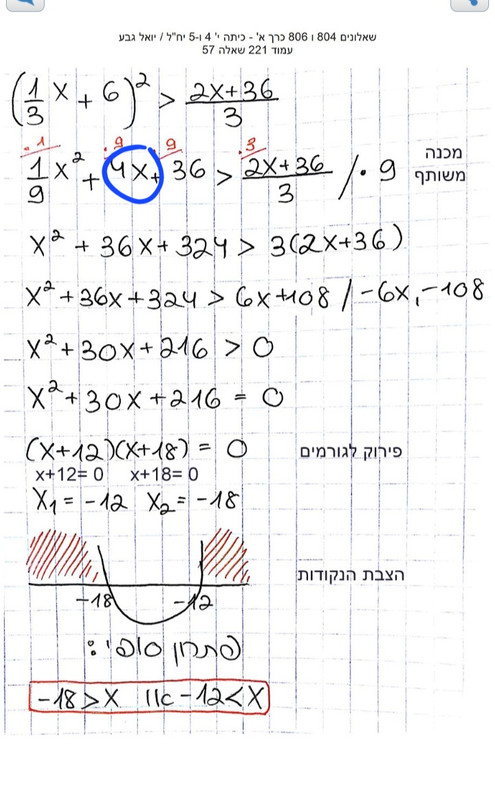 שאלונים 804 ו 806 כרך א' - כיתה י' 4 ו-5 יח"ל / יואל גבע
עמוד 221 שאלה 57
(1/3 x + 6)² > (2x+36)/3
·1 ·9 ·9 ·3
1/9 x² + 4x + 36 > (2x+36)/3 / · 9 מכנה משותף
x² + 36x + 324 > 3(2x+36)
x² + 36x + 324 > 6x + 108 / -6x, -108
x² + 30x + 216 > 0
x² + 30x + 216 = 0
(x+12)(x+18) = 0 פירוק לגורמים
x+12= 0 x+18= 0
x₁ = -12 x₂ = -18
הצבת הנקודות
-18 -12
פתרון סופי:
-18 > x או -12 < x